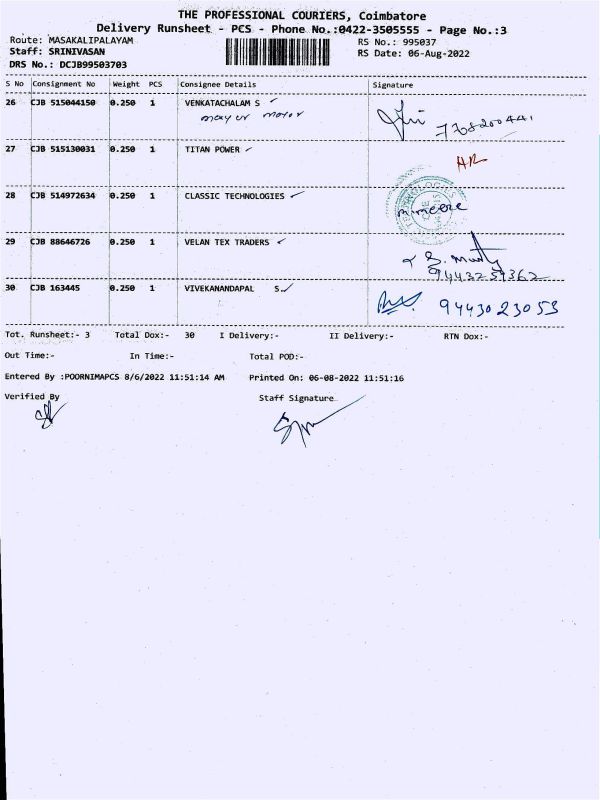 THE PROFESSIONAL COURIERS, Coimbatore
Delivery Runsheet - PCS - Phone No.:0422-3505555 - Page No.:3
Route: MASAKALIPALAYAM RS No.: 995037
Staff: SRINIVASAN RS Date: 06-Aug-2022
DRS No.: DCJB99503703
S No Consignment No Weight PCS Consignee Details Signature
26 CJB 515044150 0.250 1 VENKATACHALAM S
mayur motor
27 CJB 515130031 0.250 1 TITAN POWER
28 CJB 514972634 0.250 1 CLASSIC TECHNOLOGIES
29 CJB 88646726 0.250 1 VELAN TEX TRADERS
9443259362
30 CJB 163445 0.250 1 VIVEKANANDAPAL S
9443023053
Tot. Runsheet:- 3 Total Dox:- 30 I Delivery:- II Delivery:- RTN Dox:-
Out Time:- In Time:- Total POD:-
Entered By :POORNIMAPCS 8/6/2022 11:51:14 AM Printed On: 06-08-2022 11:51:16
Verified By Staff Signature